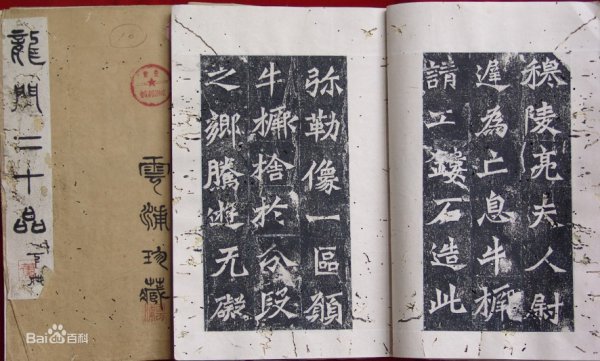 龍門二十品
雲浦珍藏
穆陵亮夫人尉
遲為亡息牛橛
請工鏤石造此
弥勒像一區願
牛橛捨於分段
之鄉騰遊无礙
Bai百科